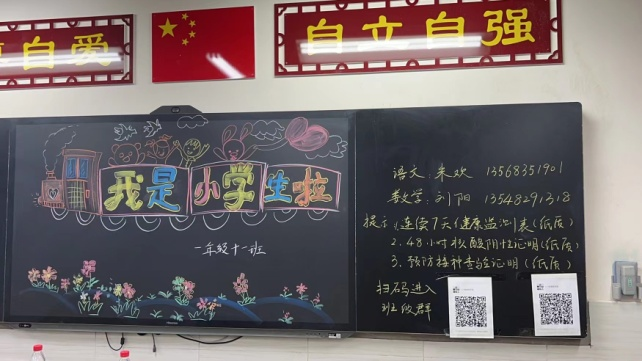 自爱
自立自强
我是小学生啦
一年级十一班
语文：朱欢 13568351901
数学：刘阳 13548291318
提示：1.连续7天健康监测表(纸质)
2.48小时核酸阴性证明(纸质)
3.预防接种查验证明(纸质)
扫码进入
班级群